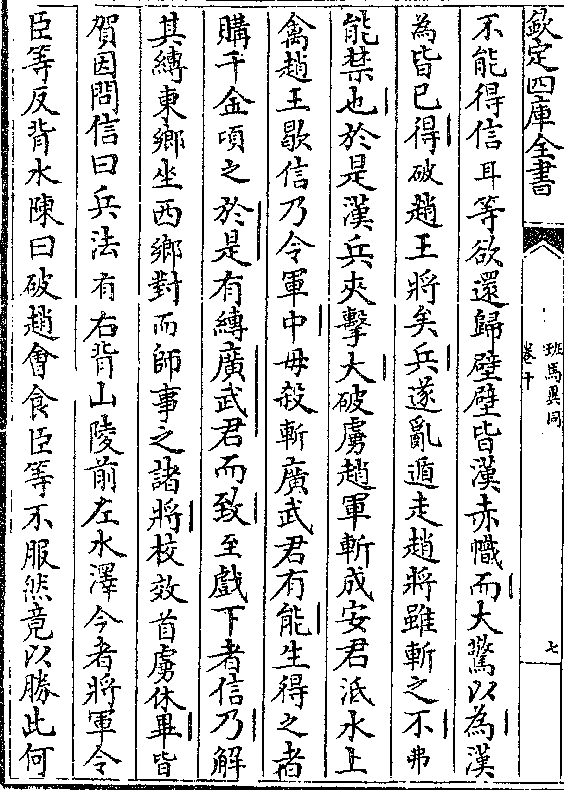 欽定四庫全書
班馬異同
卷十
七
不能得信耳等欲還歸壁壁皆漢赤幟而大驚以為漢
為皆已得破趙王將矣兵遂亂遁走趙將雖斬之不弗
能禁也於是漢兵夾擊大破虜趙軍斬成安君泜水上
禽趙王歇信乃令軍中毋殺斬廣武君有能生得之者
購千金頃之於是有縛廣武君而致至戲下者信乃解
其縛東鄉坐西鄉對而師事之諸將校效首虜休畢皆
賀因問信曰兵法有右背山陵前左水澤今者將軍令
臣等反背水陳曰破趙會食臣等不服然竟以勝此何